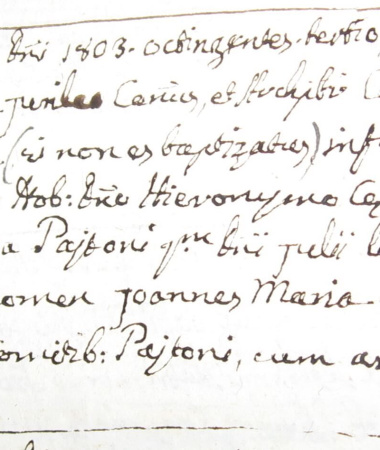 Dñi 1803. octingentes. tertio
Canus, et Archipbr
(si non es baptizatus) inf
Nob: Dño Hieronymo Ce
a Pajtoni qm Dñi Julii
omen Joannes Maria
Pajtoni, cum